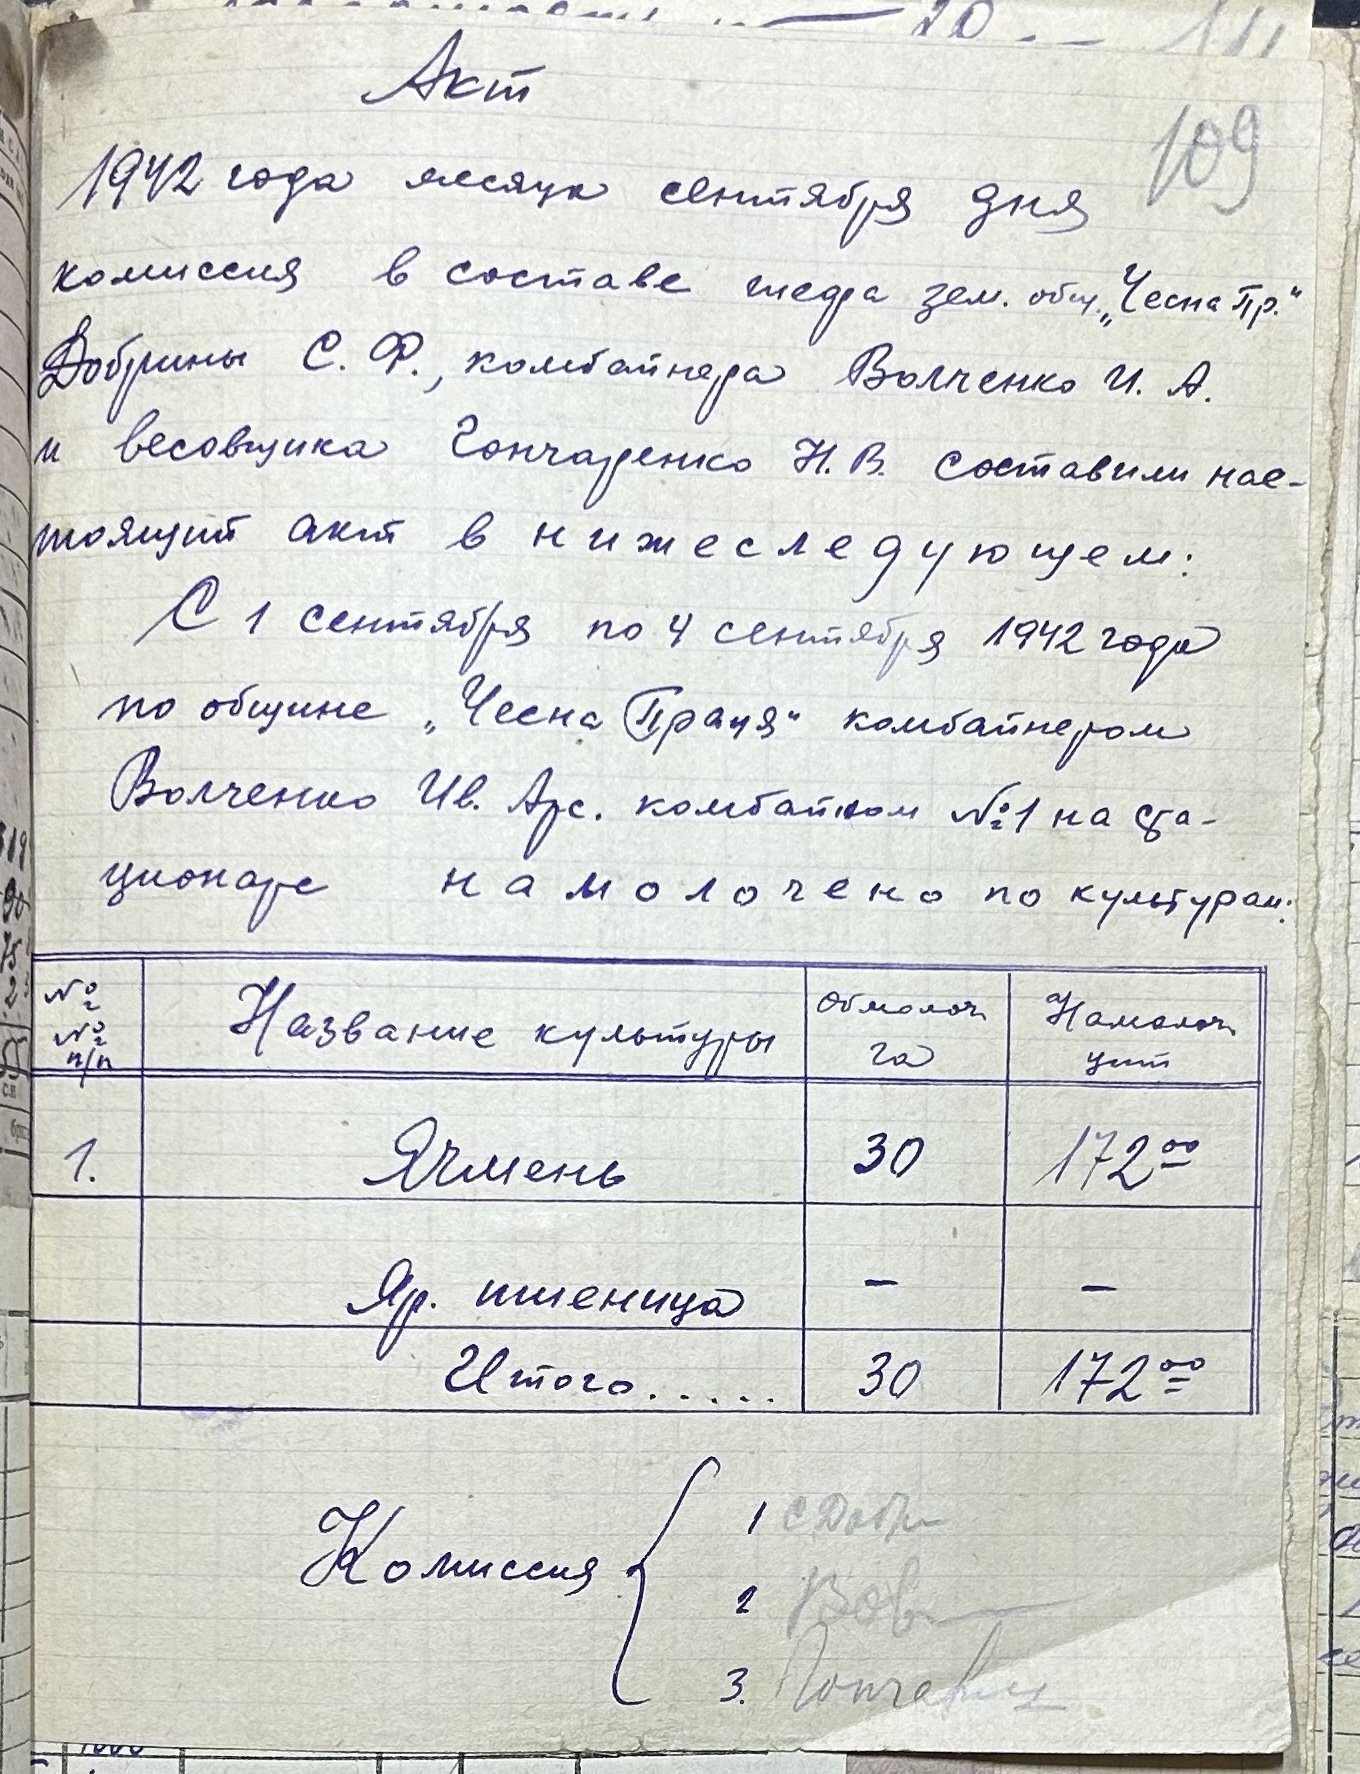 Акт
109
1942 года месяца сентября дня
комиссия в составе шефа зем. общ. „Чесна Пр."
Добрины С. Ф., комбайнера Волченко И. А.
и весовщика Гончаренко Н. В. составили нас-
тоящий акт в нижеследующем:
С 1 сентября по 4 сентября 1942 года
по общине „Чесна Праця" комбайнером
Волченко Ив. Арс. комбайном №1 на ста-
ционаре намолочено по культурам:
№ № п/п Название культуры Обмолоч. га Намолоч. цнт
1. Ячмень 30 172 00
Яр. пшеница - -
Итого..... 30 172 00
Комиссия
1
2
3.